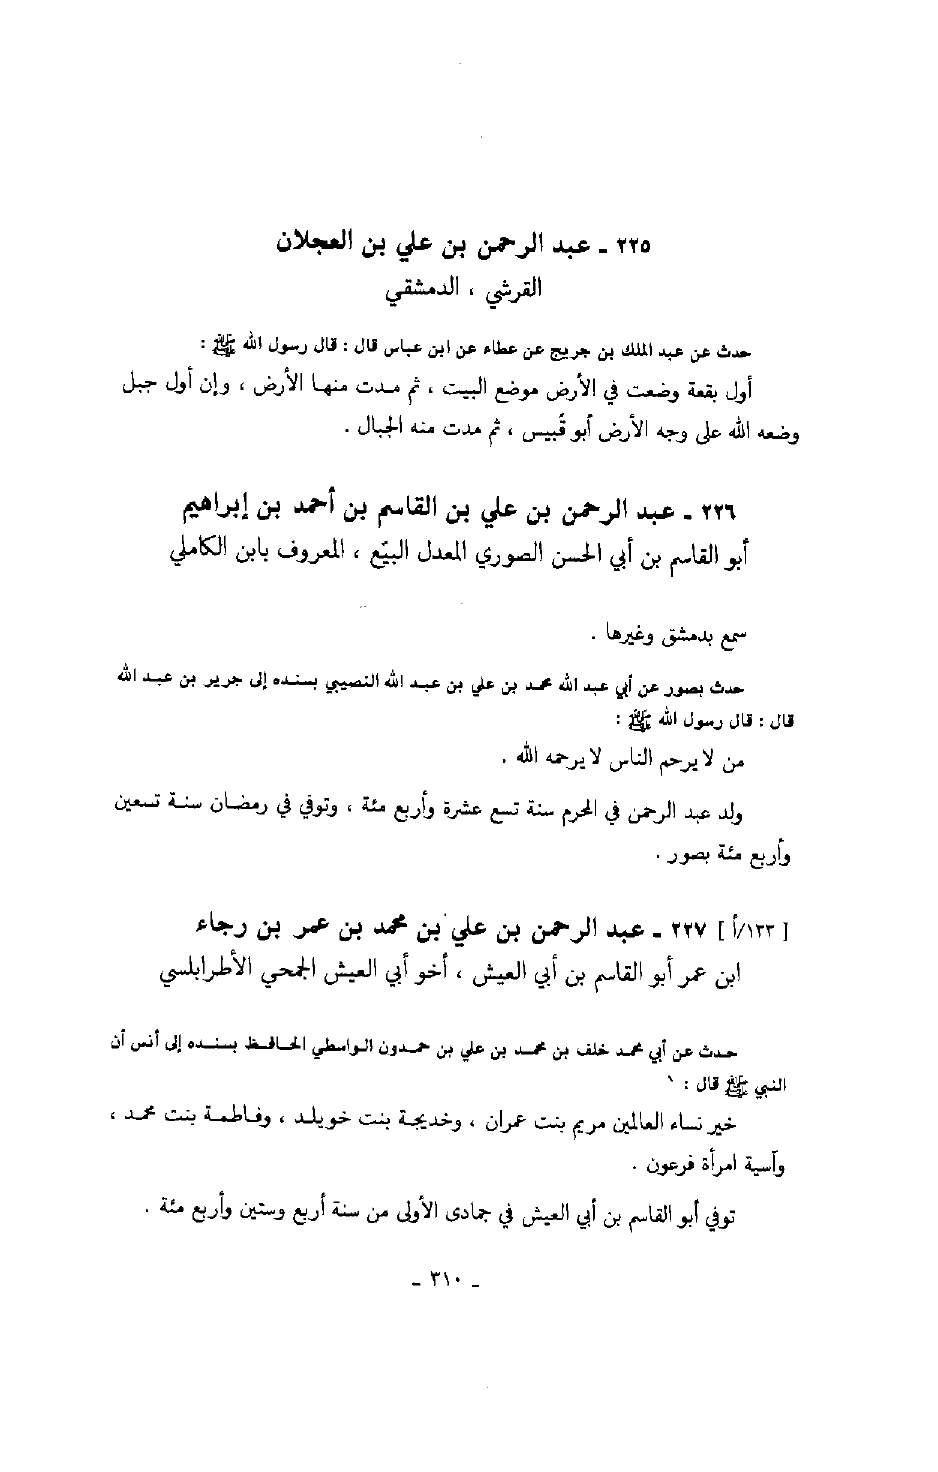 ٢٢٥ ـ عبد الرحمن بن علي بن العجلان
القرشي ، الدمشقي
حدث عن عبد الملك بن جريج عن عطاء عن ابن عباس قال : قال رسول الله ﷺ :
أول بقعة وضعت في الأرض موضع البيت ، ثم مدت منها الأرض ، وإن أول جبل
وضعه الله على وجه الأرض أبو قُبيس ، ثم مدت منه الجبال .
٢٢٦ ـ عبد الرحمن بن علي بن القاسم بن أحمد بن إبراهيم
أبو القاسم بن أبي الحسن الصوري المعدل البيّع ، المعروف بابن الكاملي
سمع بدمشق وغيرها .
حدث بصور عن أبي عبد الله محمد بن علي بن عبد الله النصيبي بسنده إلى جرير بن عبد الله
قال : قال رسول الله ﷺ :
من لا يرحم الناس لا يرحمه الله .
ولد عبد الرحمن في المحرم سنة تسع عشرة وأربع مئة ، وتوفي في رمضان سنة تسعين
وأربع مئة بصور .
[ ١٣٣/أ ] ٢٢٧ ـ عبد الرحمن بن علي بن محمد بن عمر بن رجاء
ابن عمر أبو القاسم بن أبي العيش ، أخو أبي العيش الجمحي الأطرابلسي
حدث عن أبي محمد خلف بن محمد بن علي بن حمدون الواسطي الحافظ بسنده إلى أنس أن
النبي ﷺ قال :
خير نساء العالمين مريم بنت عمران ، وخديجة بنت خويلد ، وفاطمة بنت محمد ،
وآسية امرأة فرعون .
توفي أبو القاسم بن أبي العيش في جمادى الأولى من سنة أربع وستين وأربع مئة .
ـ ٣١٠ ـ